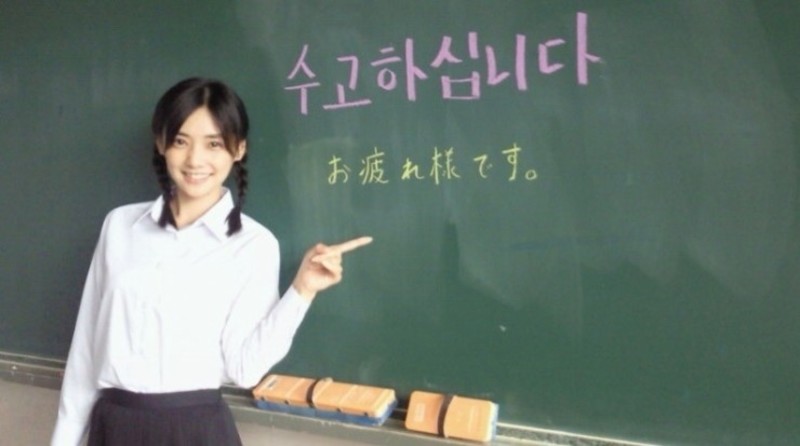 수고하십니다
お疲れ様です。